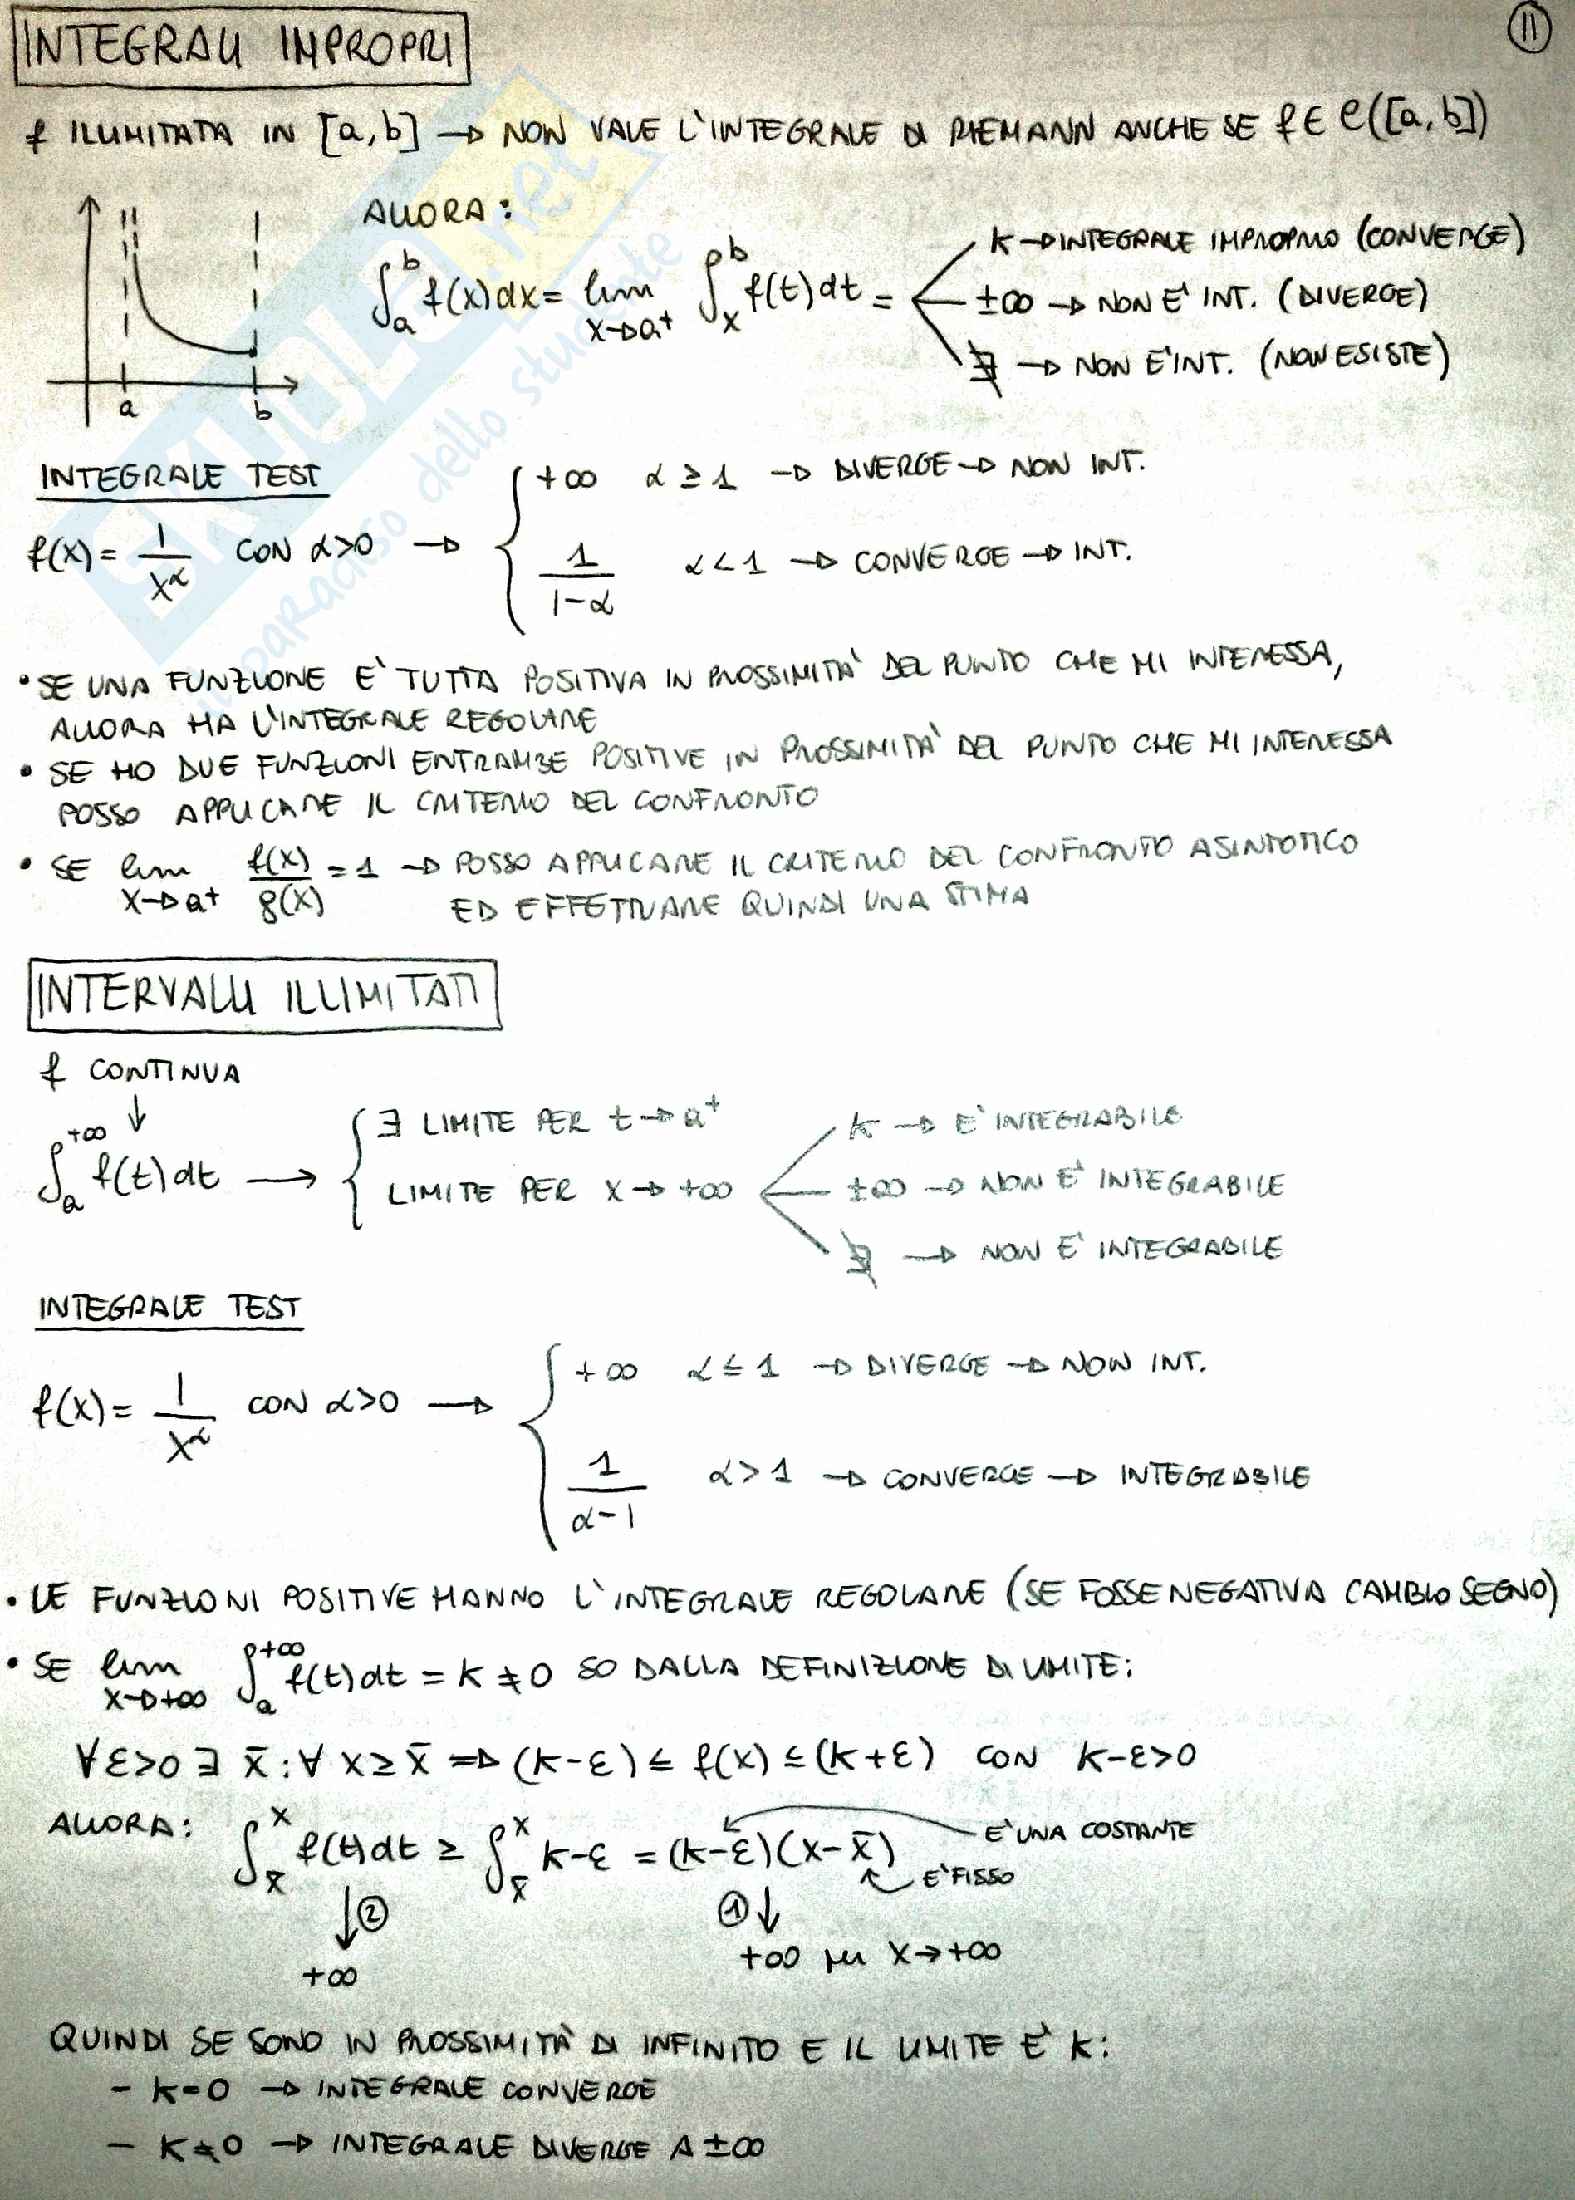 INTEGRALI IMPROPRI
11
f ILLIMITATA IN [a,b] → NON VALE L'INTEGRALE DI RIEMANN ANCHE SE f ∈ C([a,b])
ALLORA:
∫_a^b f(x)dx = lim_{x→a⁺} ∫_x^b f(t)dt =
K → INTEGRALE IMPROPRIO (CONVERGE)
±∞ → NON E' INT. (DIVERGE)
∄ → NON E' INT. (NON ESISTE)
a b
INTEGRALE TEST
f(x) = 1/x^α CON α>0 →
+∞ α ≥ 1 → DIVERGE → NON INT.
1/(1-α) α < 1 → CONVERGE → INT.
• SE UNA FUNZIONE E' TUTTA POSITIVA IN PROSSIMITA' DEL PUNTO CHE MI INTERESSA,
ALLORA HA L'INTEGRALE REGOLARE
• SE HO DUE FUNZIONI ENTRAMBE POSITIVE IN PROSSIMITA' DEL PUNTO CHE MI INTERESSA
POSSO APPLICARE IL CRITERIO DEL CONFRONTO
• SE lim_{x→a⁺} f(x)/g(x) = 1 → POSSO APPLICARE IL CRITERIO DEL CONFRONTO ASINTOTICO
ED EFFETTUARE QUINDI UNA STIMA
INTERVALLI ILLIMITATI
f CONTINUA
↓
∫_a^{+∞} f(t)dt →
∃ LIMITE PER t → a⁺
LIMITE PER x → +∞
K → E' INTEGRABILE
±∞ → NON E' INTEGRABILE
∄ → NON E' INTEGRABILE
INTEGRALE TEST
f(x) = 1/x^α CON α>0 →
+∞ α ≤ 1 → DIVERGE → NON INT.
1/(α-1) α > 1 → CONVERGE → INTEGRABILE
• LE FUNZIONI POSITIVE HANNO L'INTEGRALE REGOLARE (SE FOSSE NEGATIVA CAMBIO SEGNO)
• SE lim_{x→+∞} ∫_a^{+∞} f(t)dt = K ≠ 0 SO DALLA DEFINIZIONE DI LIMITE:
∀ε>0 ∃ x̄ : ∀ x ≥ x̄ ⇒ (K-ε) ≤ f(x) ≤ (K+ε) CON K-ε>0
ALLORA: ∫_x̄^x f(t)dt ≥ ∫_x̄^x K-ε = (K-ε)(x-x̄)
E' UNA COSTANTE
E' FISSO
↓ ② ① ↓
+∞ +∞ per x → +∞
QUINDI SE SONO IN PROSSIMITÀ DI INFINITO E IL LIMITE E' K:
- K=0 → INTEGRALE CONVERGE
- K≠0 → INTEGRALE DIVERGE A ±∞
SKUOLA.net
il paradiso dello studente